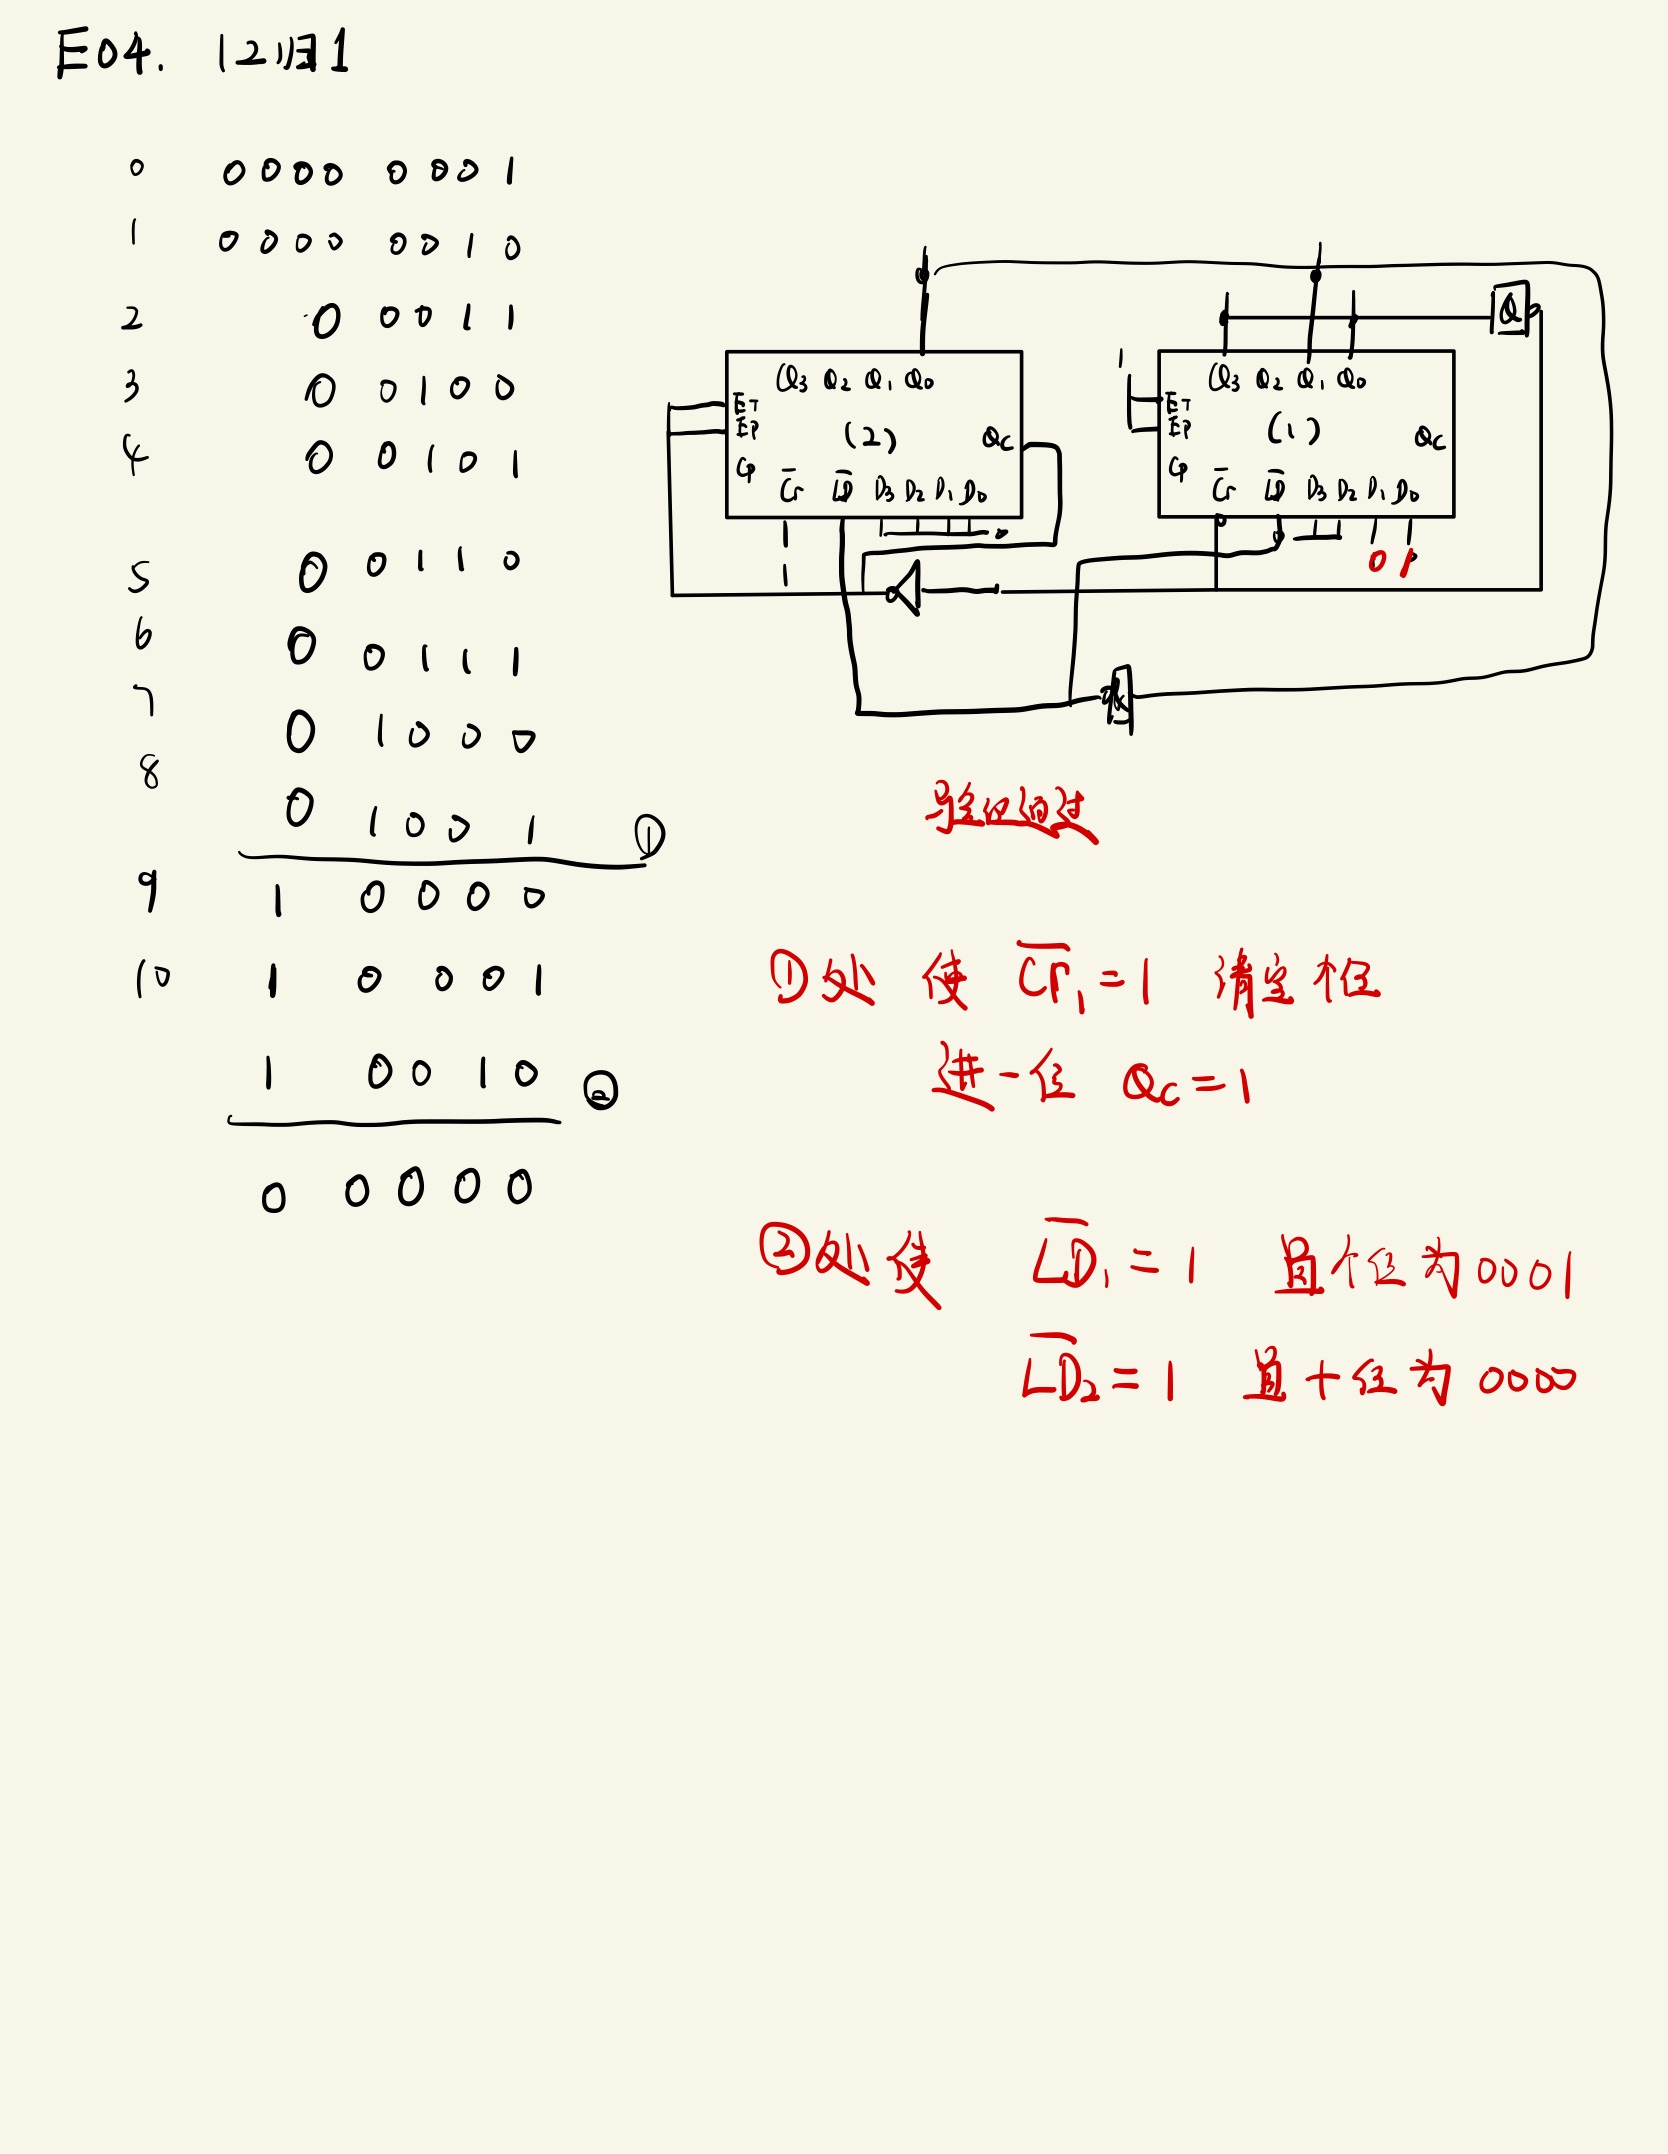 E04. 12归1
0 0000 0001
1 0000 0010
2 0 0011
3 0 0100
4 0 0101
5 0 0110
6 0 0111
7 0 1000
8 0 1001 ①
9 1 0000
10 1 0001
1 0010 ②
0 0000
Q3 Q2 Q1 Q0
ET
EP
(2)
QC
CP
C̅r̅ L̅D̅ D3 D2 D1 D0
1
0
1
Q3 Q2 Q1 Q0
ET
EP
(1)
QC
CP
C̅r̅ L̅D̅ D3 D2 D1 D0
0 1
&
&
验收通过
①处 使 C̅r̅₁=1 清空个位
进一位 QC=1
②处使 L̅D̅₁=1 置个位为0001
L̅D̅₂=1 置十位为0000